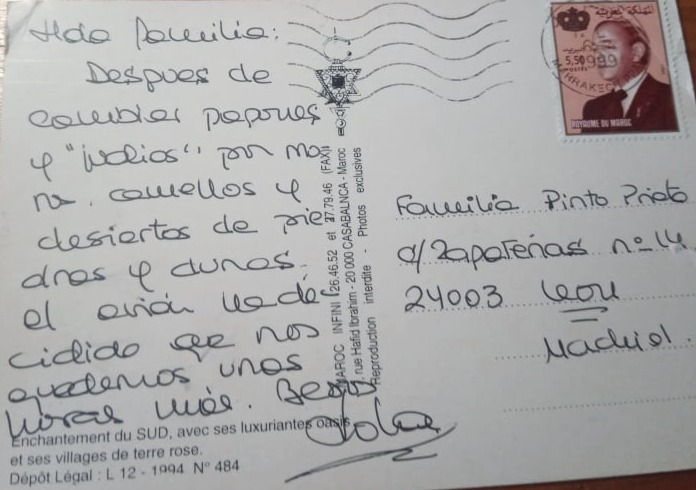 Hda Familia:
Despues de
cambiar papones
y "judios" por mo
ra. camellos y
desiertos de pie
dras y dunas.
el avión ha de
cidido que nos
quedemos unas
horas más. Besos
Enchantement du SUD, avec ses luxuriantes oasis
et ses villages de terre rose.
Dépôt Légal : L 12 - 1994 N° 484
MAROC INFINI 26.46.52 et 27.79.46 (FAX)
, rue Hafid Ibrahim - 20 000 CASABALNCA - Maroc
Reproduction interdite - Photos exclusives
المملكة المغربية
البريد
5,50
POSTES
1999
MARRAKECH
ROYAUME DU MAROC
Familia Pinto Prieto
c/ Zapaterias nº 14
24003 Leon
Madrid.